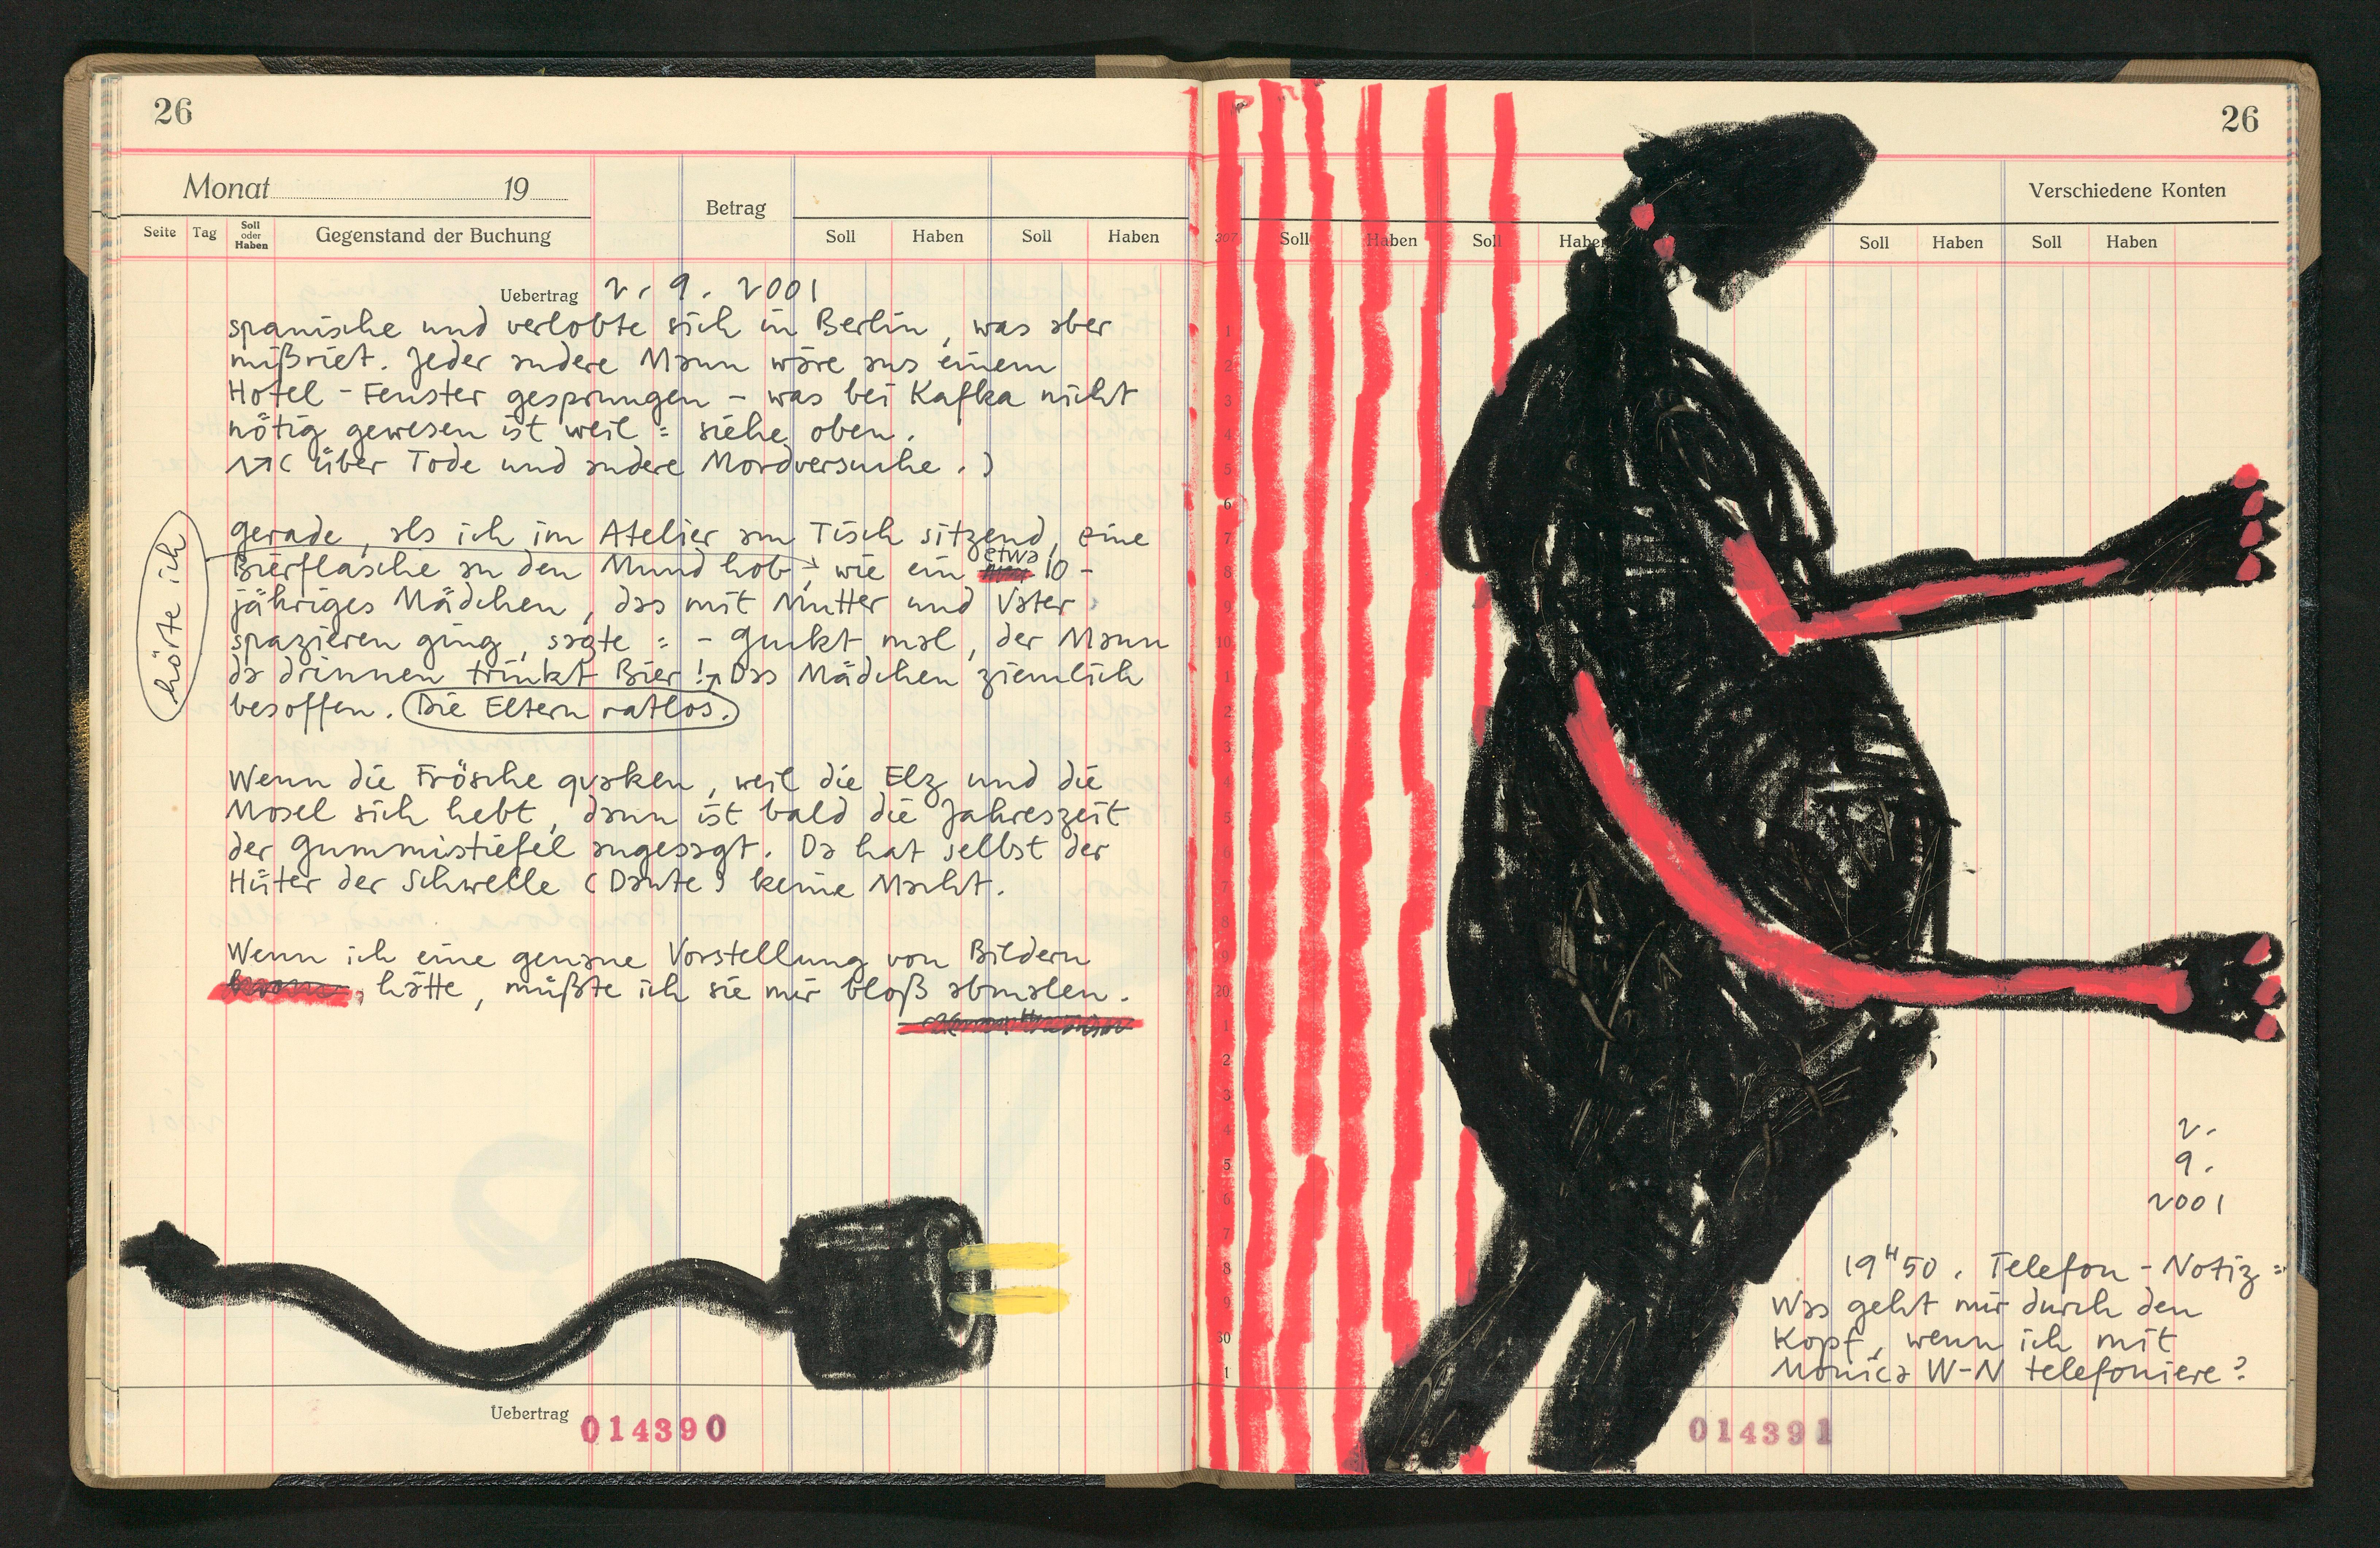 26
Monat 19
Betrag
Seite Tag Soll oder Haben Gegenstand der Buchung Soll Haben Soll Haben
Uebertrag 2. 9. 2001
spanische und verlobte sich in Berlin, was aber
mißriet. Jeder andere Mann wäre aus einem
Hotel-Fenster gesprungen – was bei Kafka nicht
nötig gewesen ist weil = siehe oben.
(über Tode und andere Mordversuche.)
gerade, als ich im Atelier am Tisch sitzend, eine
etwa
Bierflasche an den Mund hob, wie ein 10-
hörte ich
jähriges Mädchen, das mit Mutter und Vater
spazieren ging, sagte = - Guckt mal, der Mann
da drinnen trinkt Bier! Das Mädchen ziemlich
besoffen. Die Eltern ratlos.
Wenn die Frösche quaken, weil die Elz und die
Mosel sich hebt, dann ist bald die Jahreszeit
der Gummistiefel angesagt. Da hat selbst der
Hüter der Schwelle (Dante) keine Macht.
Wenn ich eine genaue Vorstellung von Bildern
, hätte, müßte ich sie mir bloß abmalen.
Uebertrag 014390
26
Verschiedene Konten
307 Soll Haben Soll Haben Soll Haben Soll Haben
1
2
3
4
5
6
7
8
9
10
1
2
3
4
5
6
7
8
9
20
1
2
3
4
5
6
7
8
9
30
1
2.
9.
2001
19H50. Telefon-Notiz=
Was geht mir durch den
Kopf, wenn ich mit
Monica W-N telefoniere?
014391